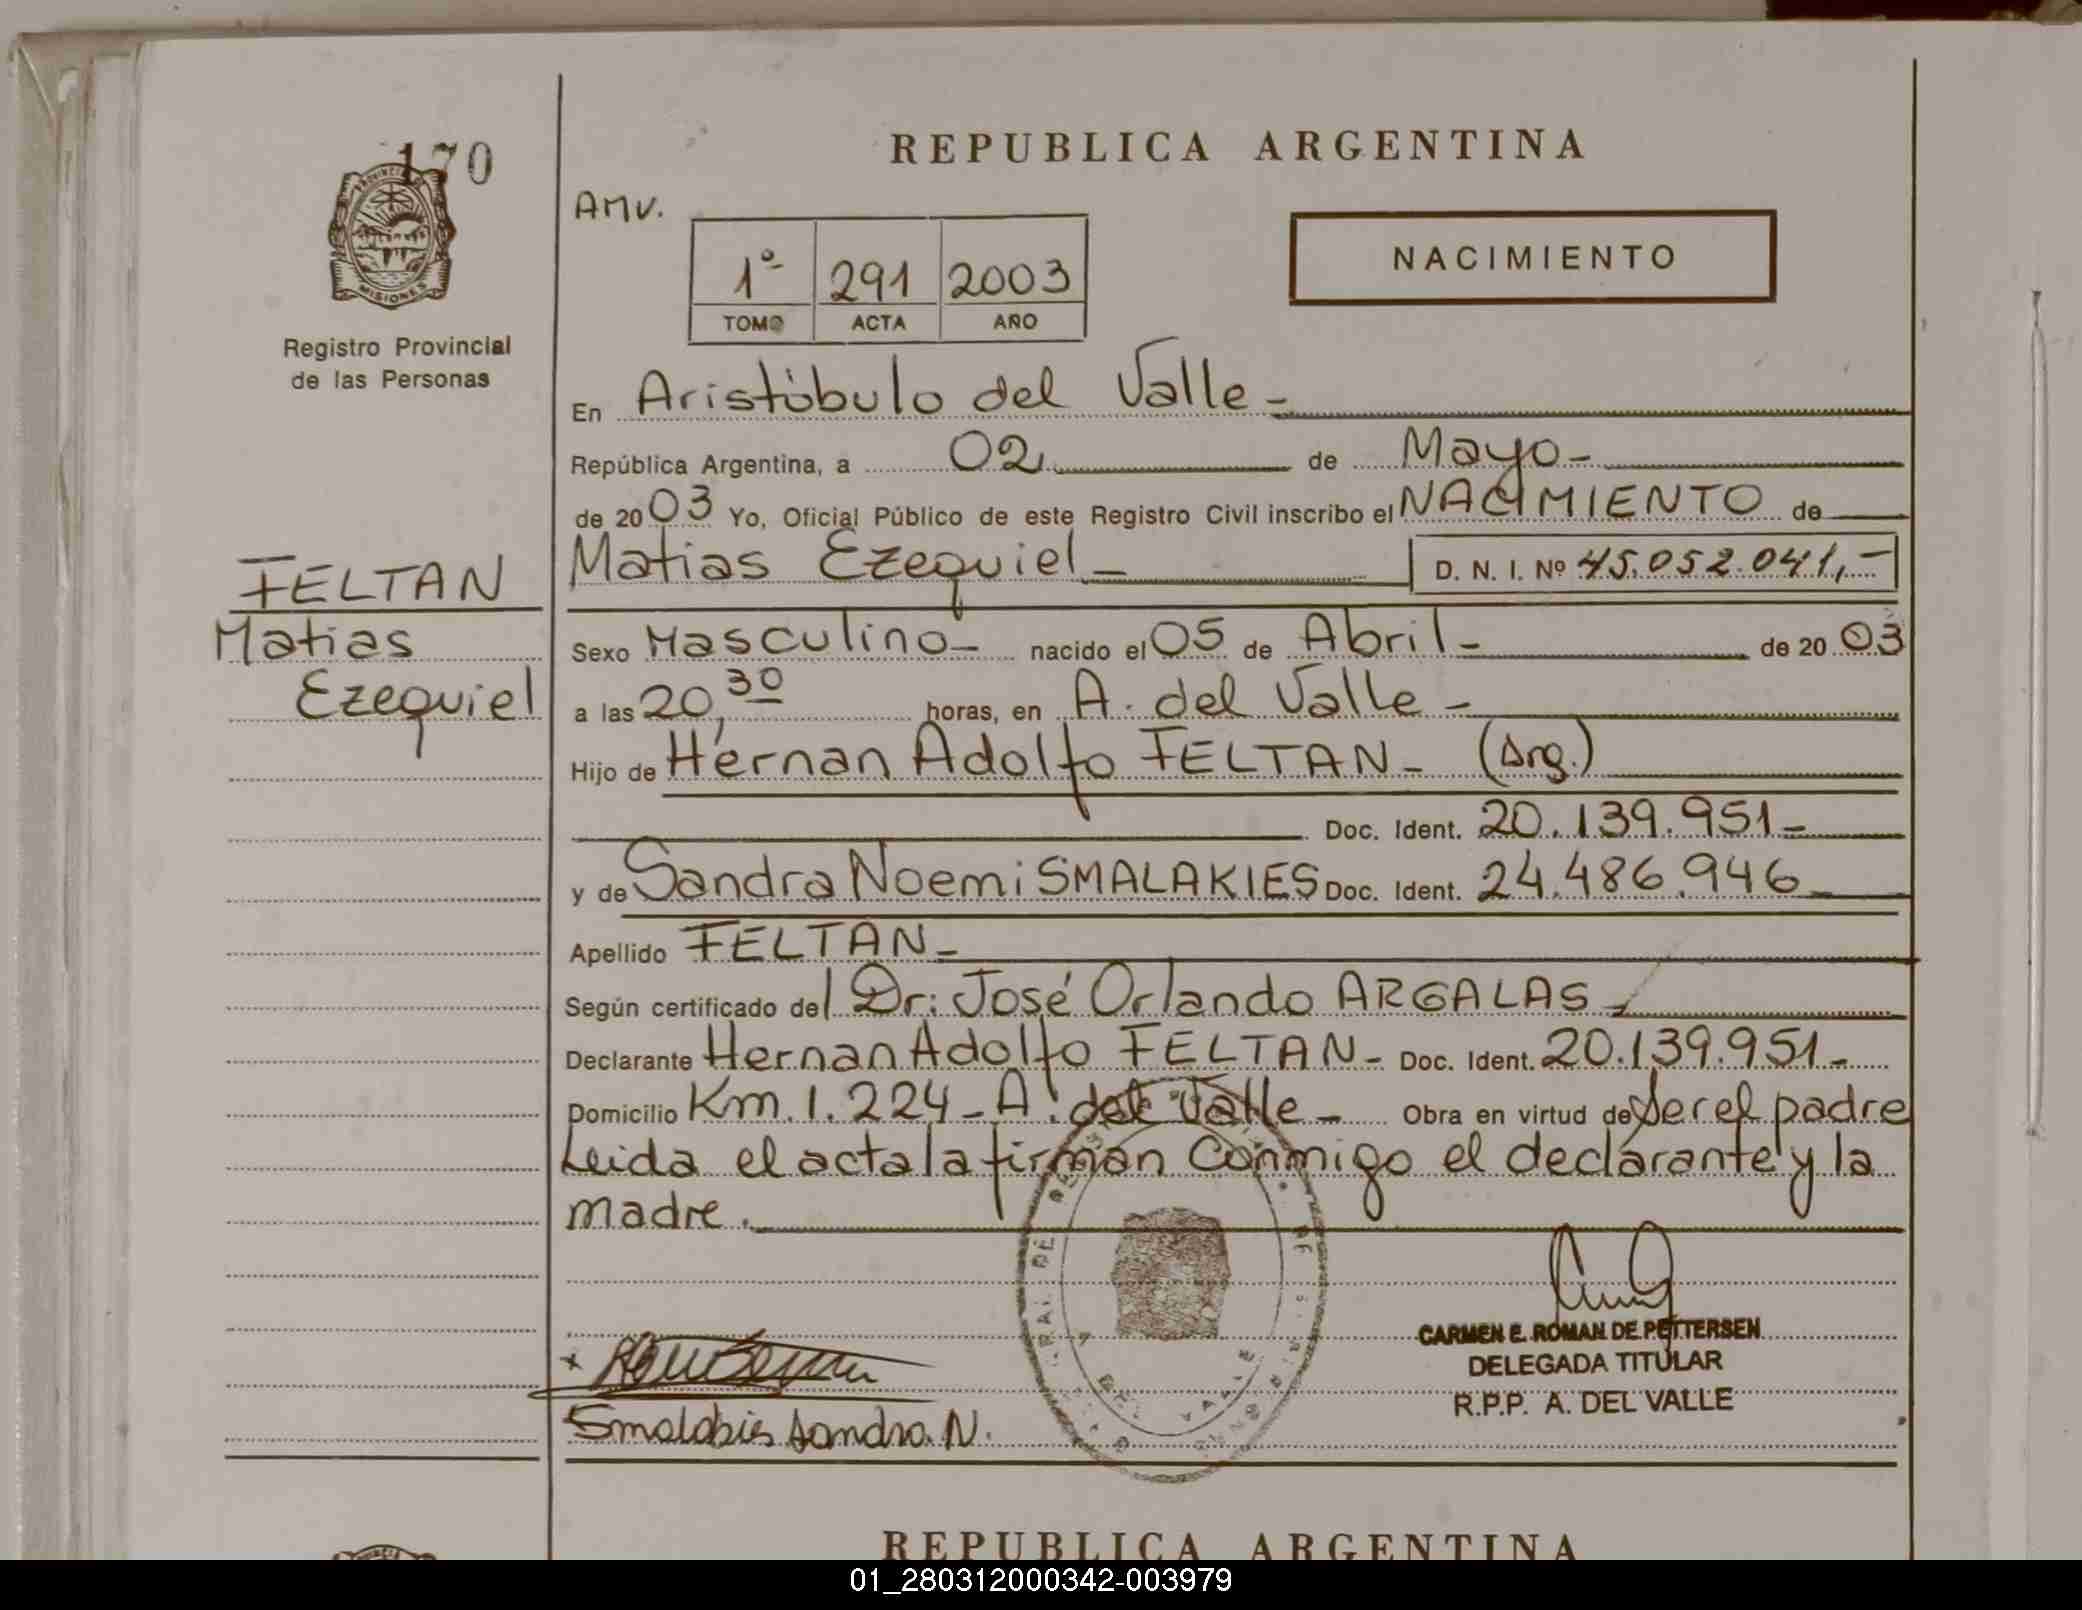 170
PROVINCIA DE
MISIONES
Registro Provincial
de las Personas
FELTAN
Matias
Ezequiel
REPUBLICA ARGENTINA
AMV.
NACIMIENTO
1º 291 2003
TOMO ACTA AÑO
En Aristóbulo del Valle-
República Argentina, a 02 de Mayo-
de 2003 Yo, Oficial Público de este Registro Civil inscribo el NACIMIENTO de
Matias Ezequiel- D. N. I. Nº 45.052.041,-
Sexo Masculino- nacido el 05 de Abril- de 2003
a las 20,30 horas, en A. del Valle-
Hijo de Hernan Adolfo FELTAN- (Arg.)
Doc. Ident. 20.139.951-
y de Sandra Noemi SMALAKIES Doc. Ident. 24.486.946-
Apellido FELTAN-
Según certificado del Dr: José Orlando ARGALAS-
Declarante Hernan Adolfo FELTAN- Doc. Ident. 20.139.951-
Domicilio Km. 1.224- A. del Valle- Obra en virtud de Ser el padre
Leida el acta la firman conmigo el declarante y la
madre.
CARMEN E. ROMAN DE PETTERSEN
DELEGADA TITULAR
R.P.P. A. DEL VALLE
Smalakies Sandra. N.
REPUBLICA ARGENTINA
01_280312000342-003979